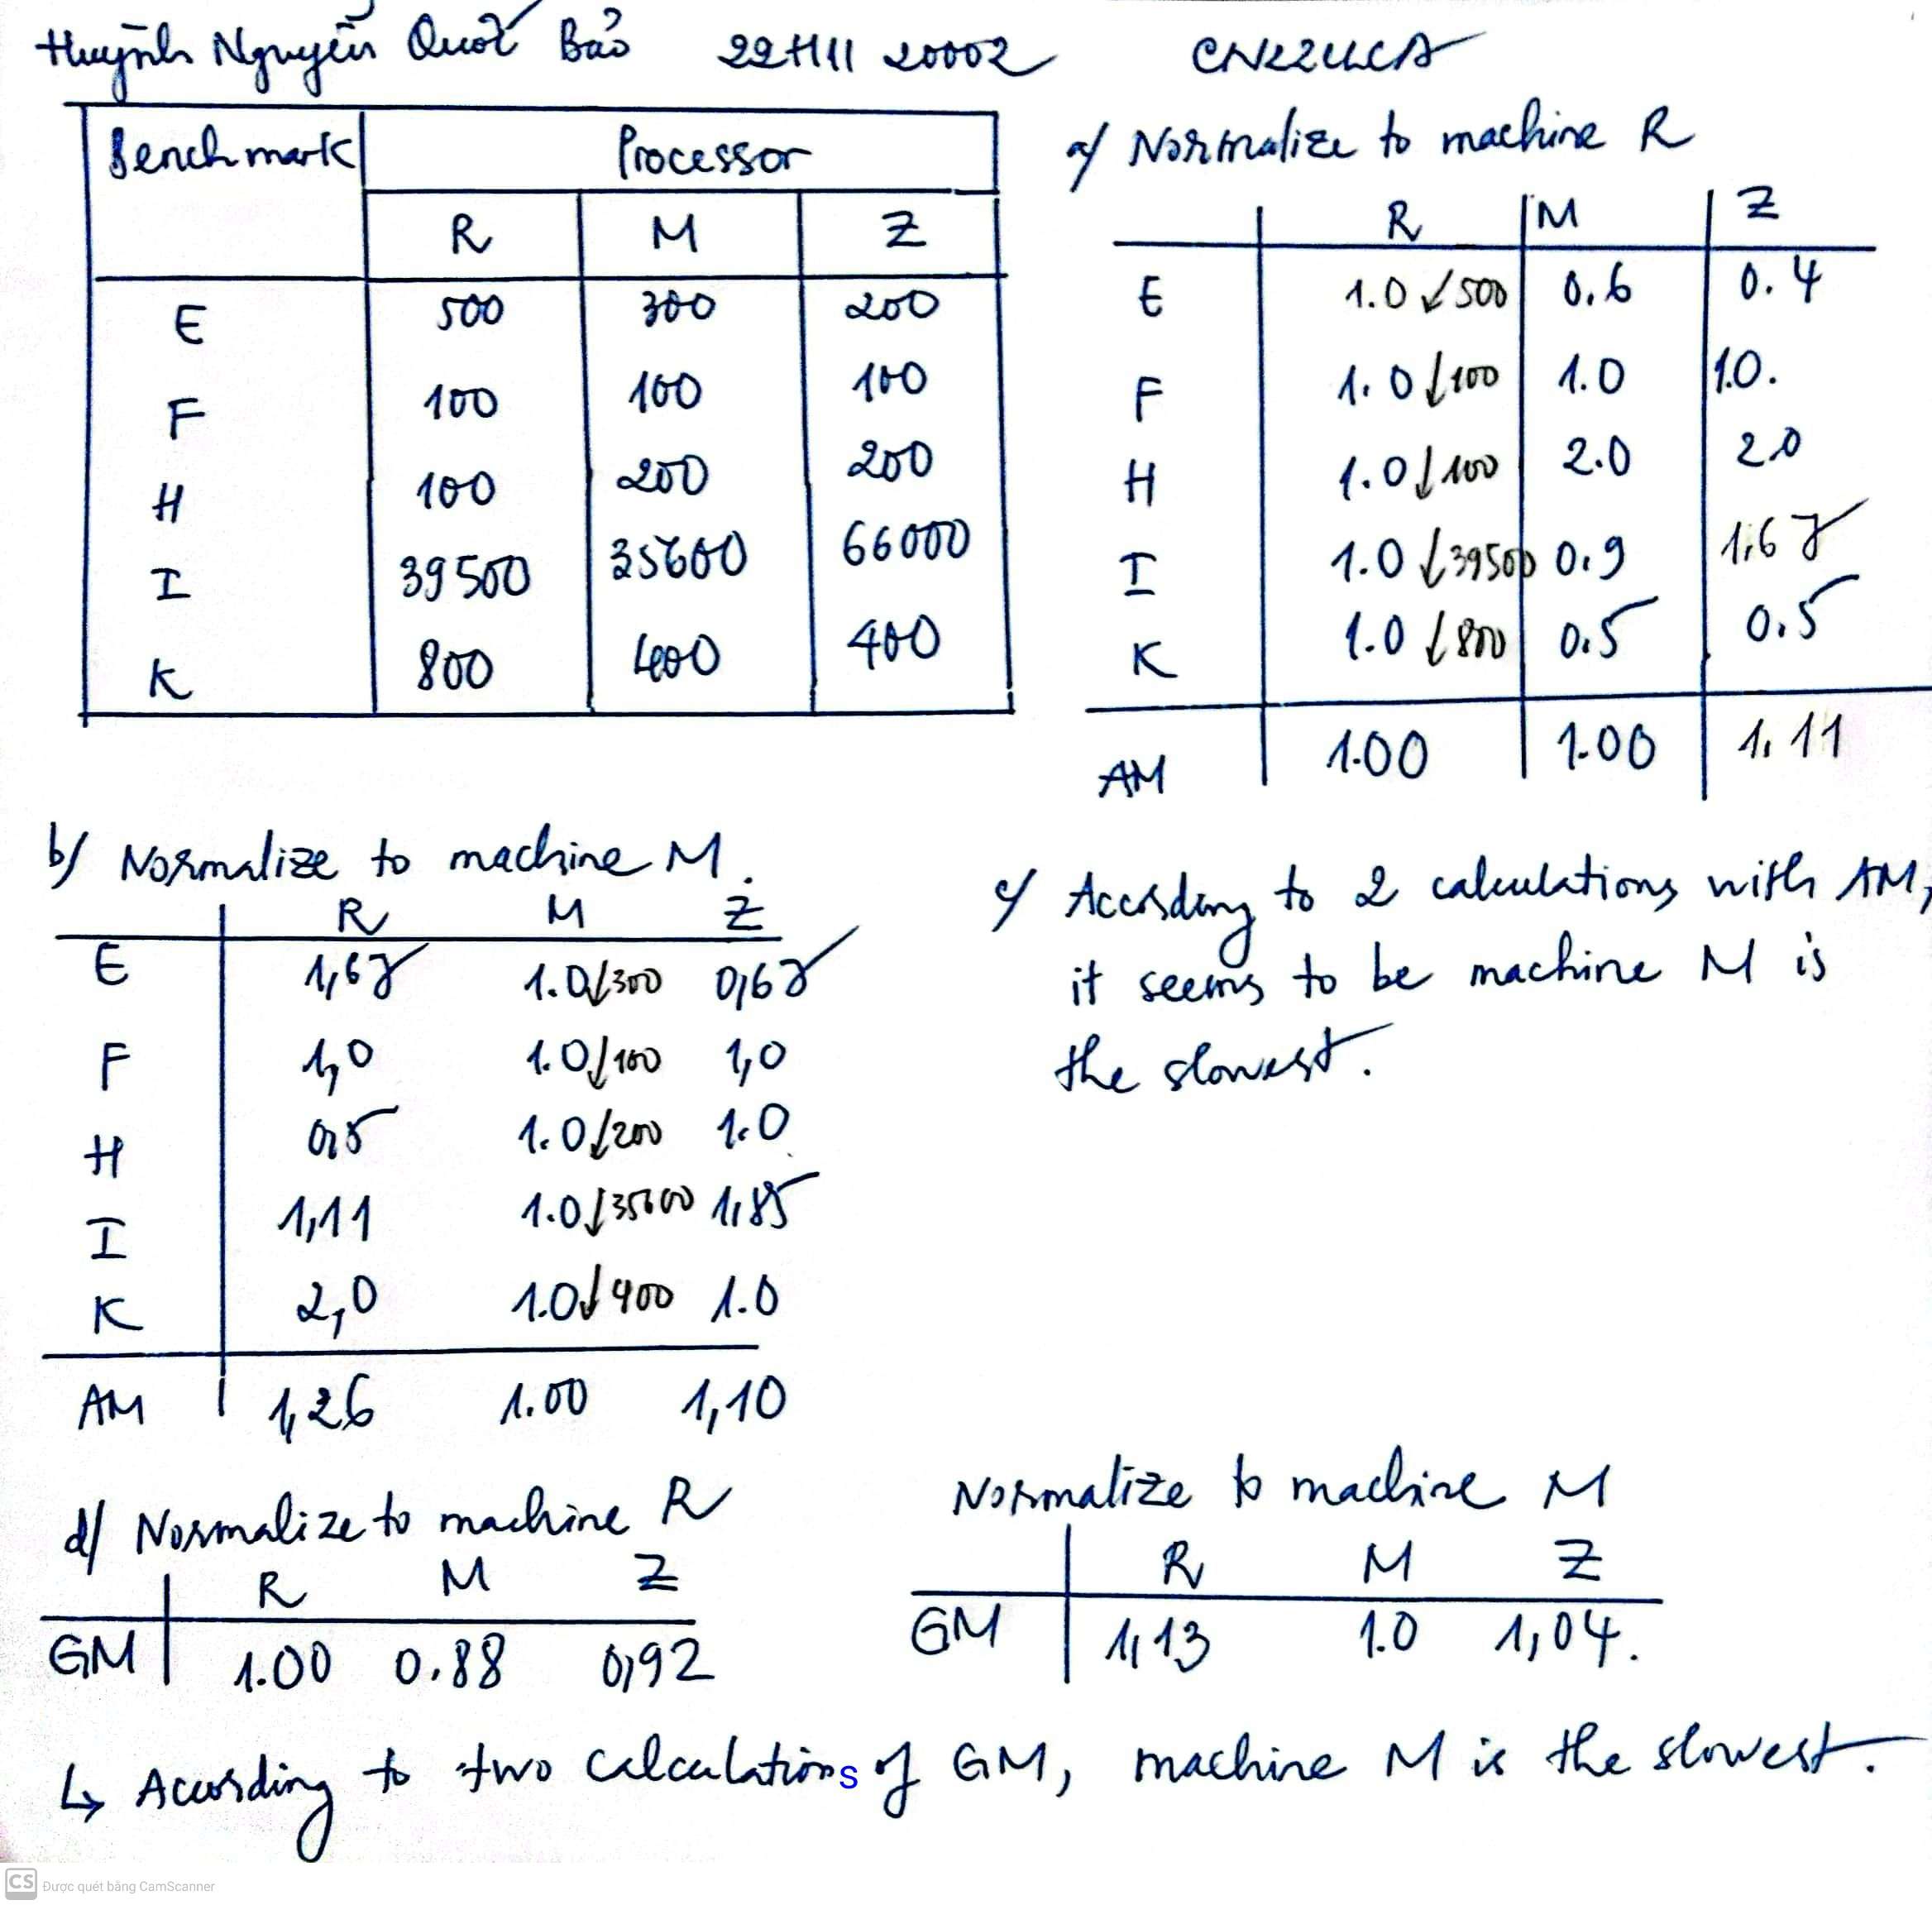 Huỳnh Nguyễn Quốc Bảo 22H1120002 CN22CLCA
Benchmark Processor
R M Z
E 500 300 200
F 100 100 100
H 100 200 200
I 39500 35600 66000
K 800 400 400
a/ Normalize to machine R
R M Z
E 1.0 ↓500 0.6 0.4
F 1.0 ↓100 1.0 1.0.
H 1.0 ↓100 2.0 2.0
I 1.0 ↓39500 0.9 1,67
K 1.0 ↓800 0.5 0.5
AM 1.00 1.00 1.11
b/ Normalize to machine M.
R M Z
E 1,67 1.0↓300 0,67
F 1,0 1.0↓100 1,0
H 0,5 1.0↓200 1.0
I 1,11 1.0↓35600 1,85
K 2,0 1.0↓400 1.0
AM 1,26 1.00 1,10
c/ According to 2 calculations with AM,
it seems to be machine M is
the slowest.
d/ Normalize to machine R
R M Z
GM 1.00 0.88 0,92
Normalize to machine M
R M Z
GM 1,13 1.0 1,04.
↳ According to two calculations of GM, machine M is the slowest.
CS Được quét bằng CamScanner